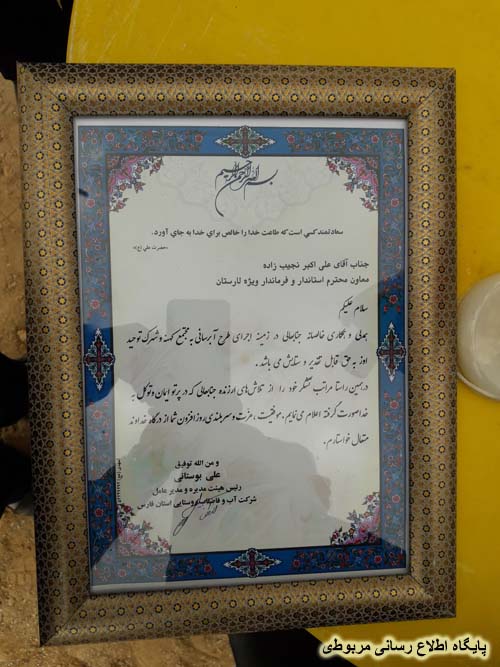 بسم الله الرحمن الرحیم
سعادتمند کسی است که طاعت خدا را خالص برای خدا به جای آورد.
«حضرت علی (ع)»
جناب آقای علی اکبر نجیب زاده
معاون محترم استاندار و فرماندار ویژه لارستان
سلام علیکم
همدلی و همکاری خالصانه جنابعالی در زمینه اجرای طرح آبرسانی به مجتمع کهنه و شهرک توحید
اوز به حق قابل تقدیر و ستایش می باشد.
در همین راستا مراتب تشکر خود را از تلاش‌های ارزنده جنابعالی که در پرتو ایمان و توکل به
خدا صورت گرفته اعلام می نمایم. موفقیت، عزت و سربلندی روز افزون شما از درگاه خداوند
متعال خواستارم.
و من الله توفیق
علی بوستانی
رئیس هیئت مدیره و مدیر عامل
شرکت آب و فاضلاب روستایی استان فارس
پایگاه اطلاع رسانی مربوطی